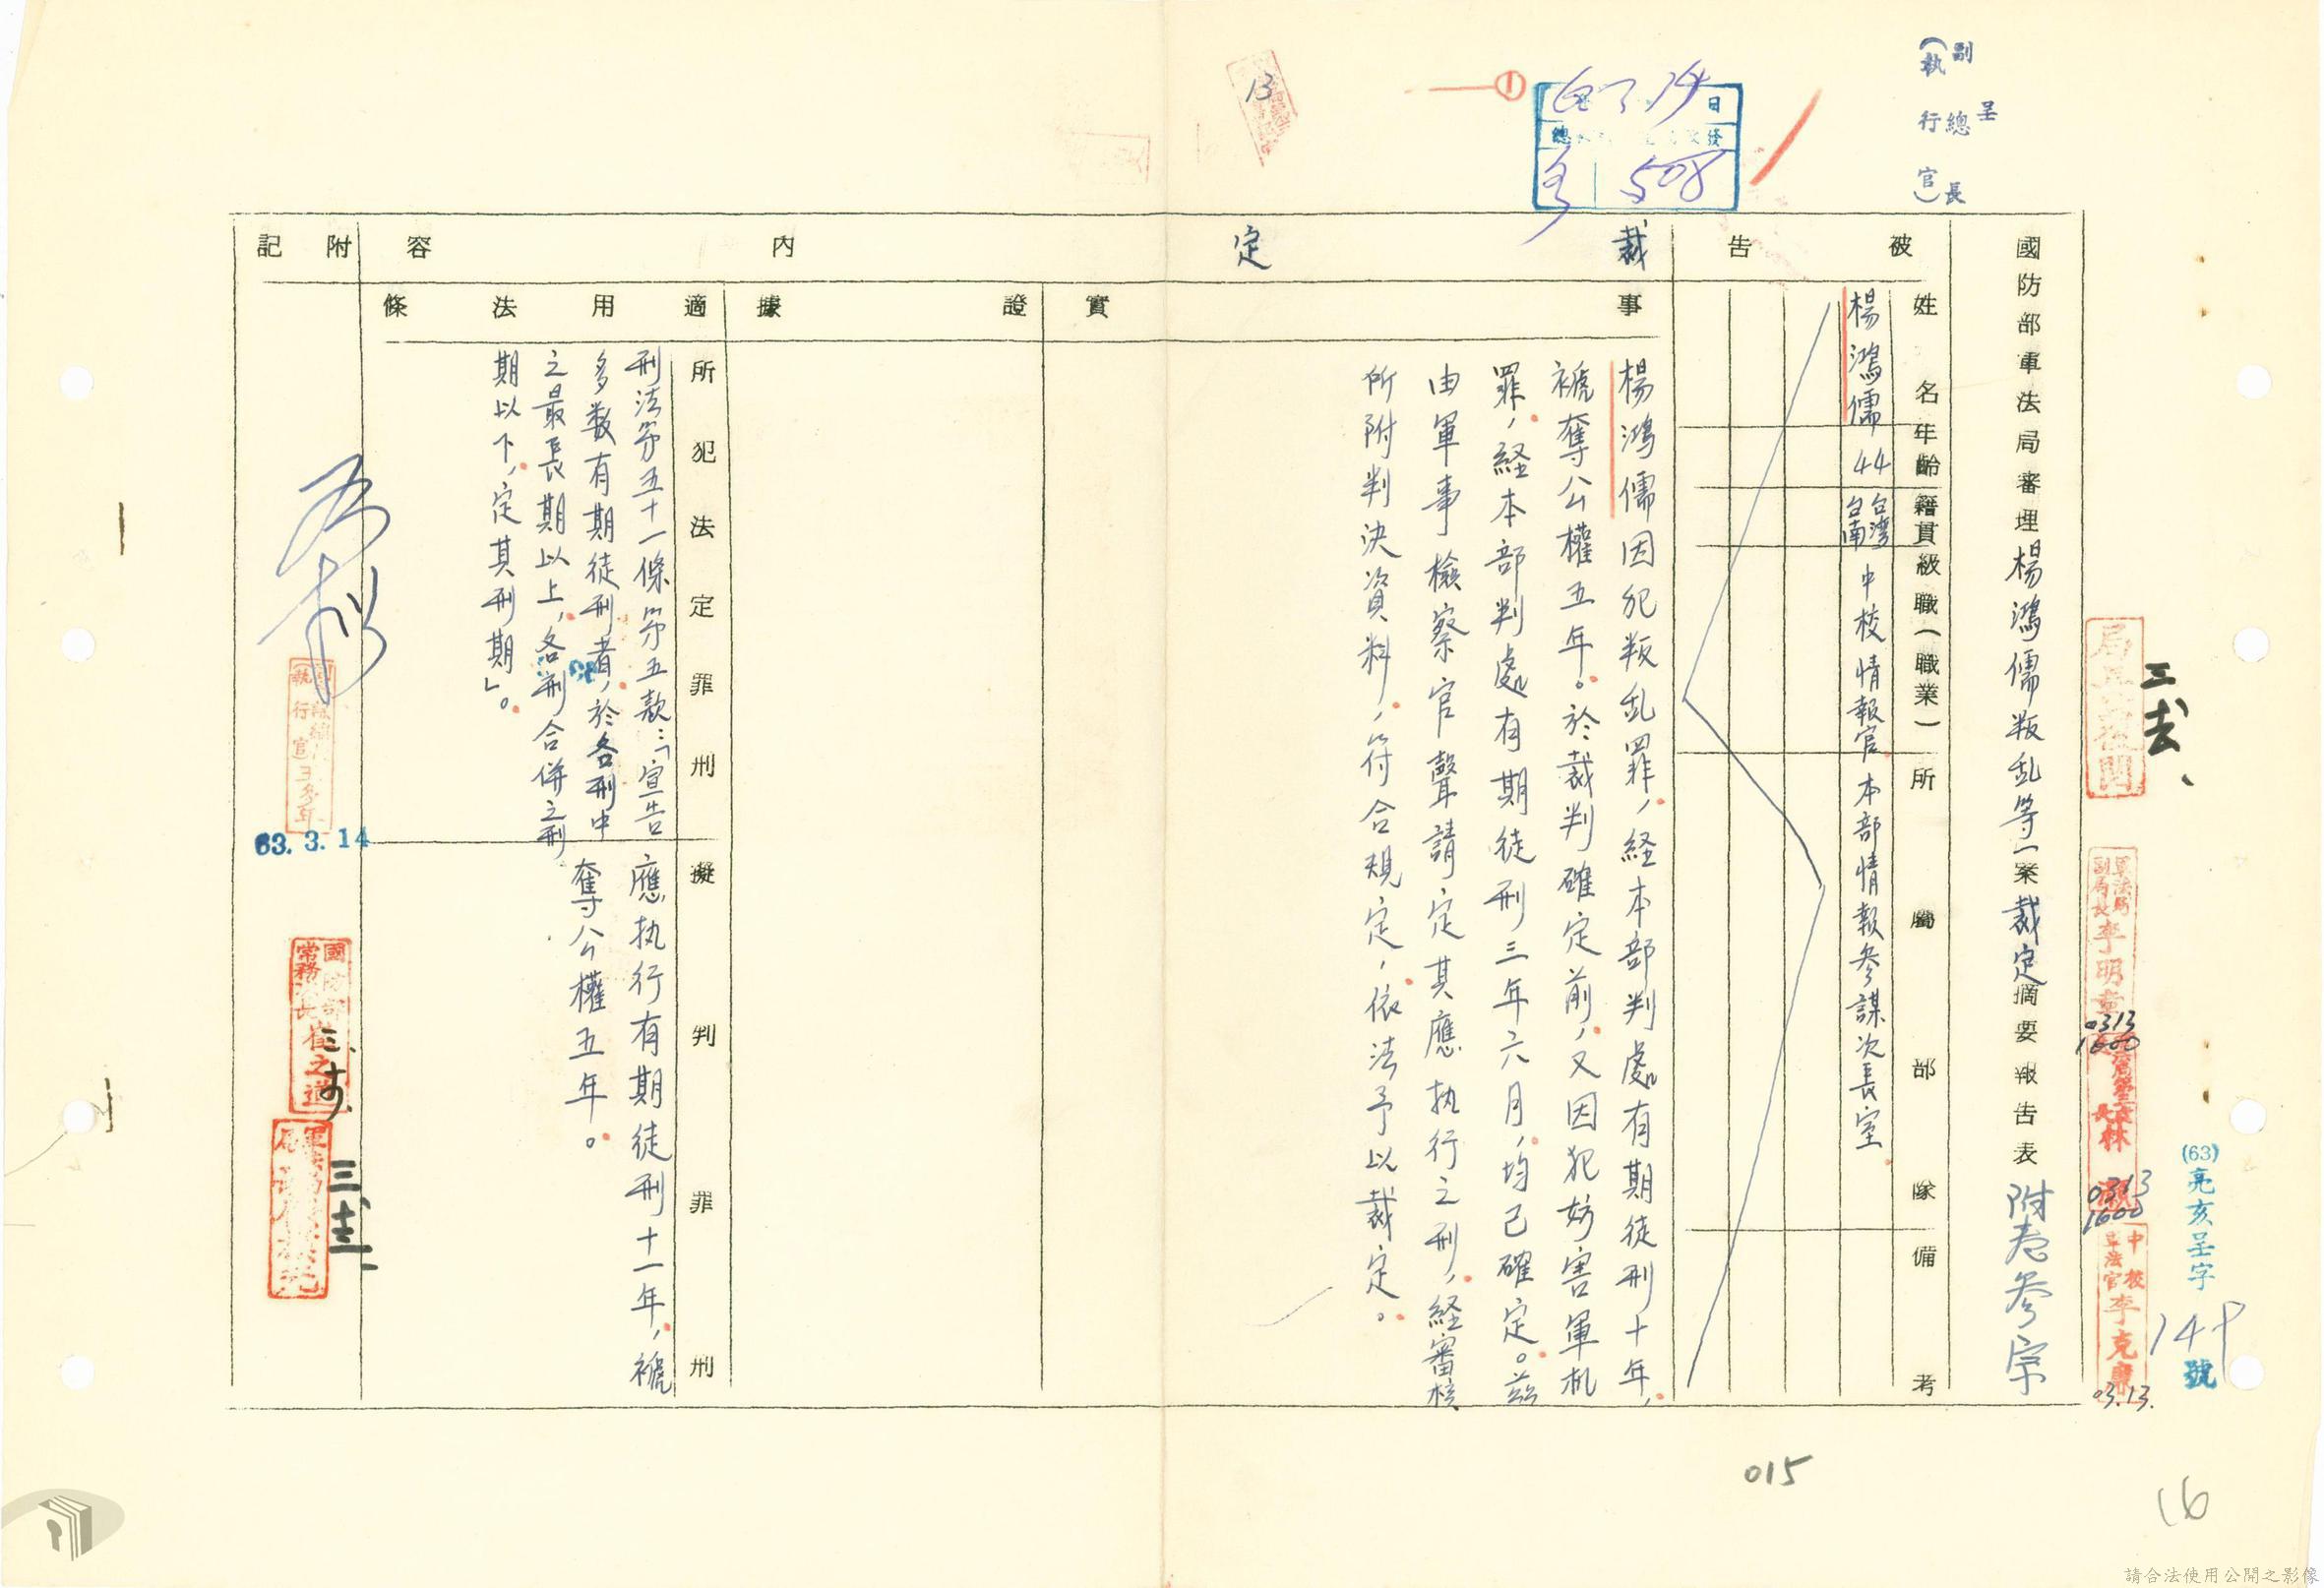 呈
副總長
（執行官）
(63)亮亥呈字149號
國防部軍法局審理楊鴻儒叛乱等一案裁定摘要報告表 附卷叄宗
被告
姓名
年齡
籍貫
級職（職業）
所屬部隊
備考
楊鴻儒
44
台灣台南
中校情報官
本部情報參謀次長室
裁定內容
事實
楊鴻儒因犯叛乱罪，経本部判處有期徒刑十年，
褫奪公權五年。於裁判確定前，又因犯妨害軍机
罪，経本部判處有期徒刑三年六月，均已確定。茲
由軍事檢察官聲請定其應执行之刑，経審核
所附判決資料，符合規定，依法予以裁定。
證據
適用法條
所犯法定罪刑
刑法第五十一條第五款：「宣告
多数有期徒刑者，於各刑中
之最長期以上，各刑合併之刑
期以下，定其刑期」。
擬判罪刑
應执行有期徒刑十一年，褫
奪公權五年。
附記
63.3.14
國防部
常務次長
崔之道
軍法局
副局長李明章
0313
1600
0313
1600
中校
軍法官李克康
03.13.
13
①
日
508
015
16
請合法使用公開之影像